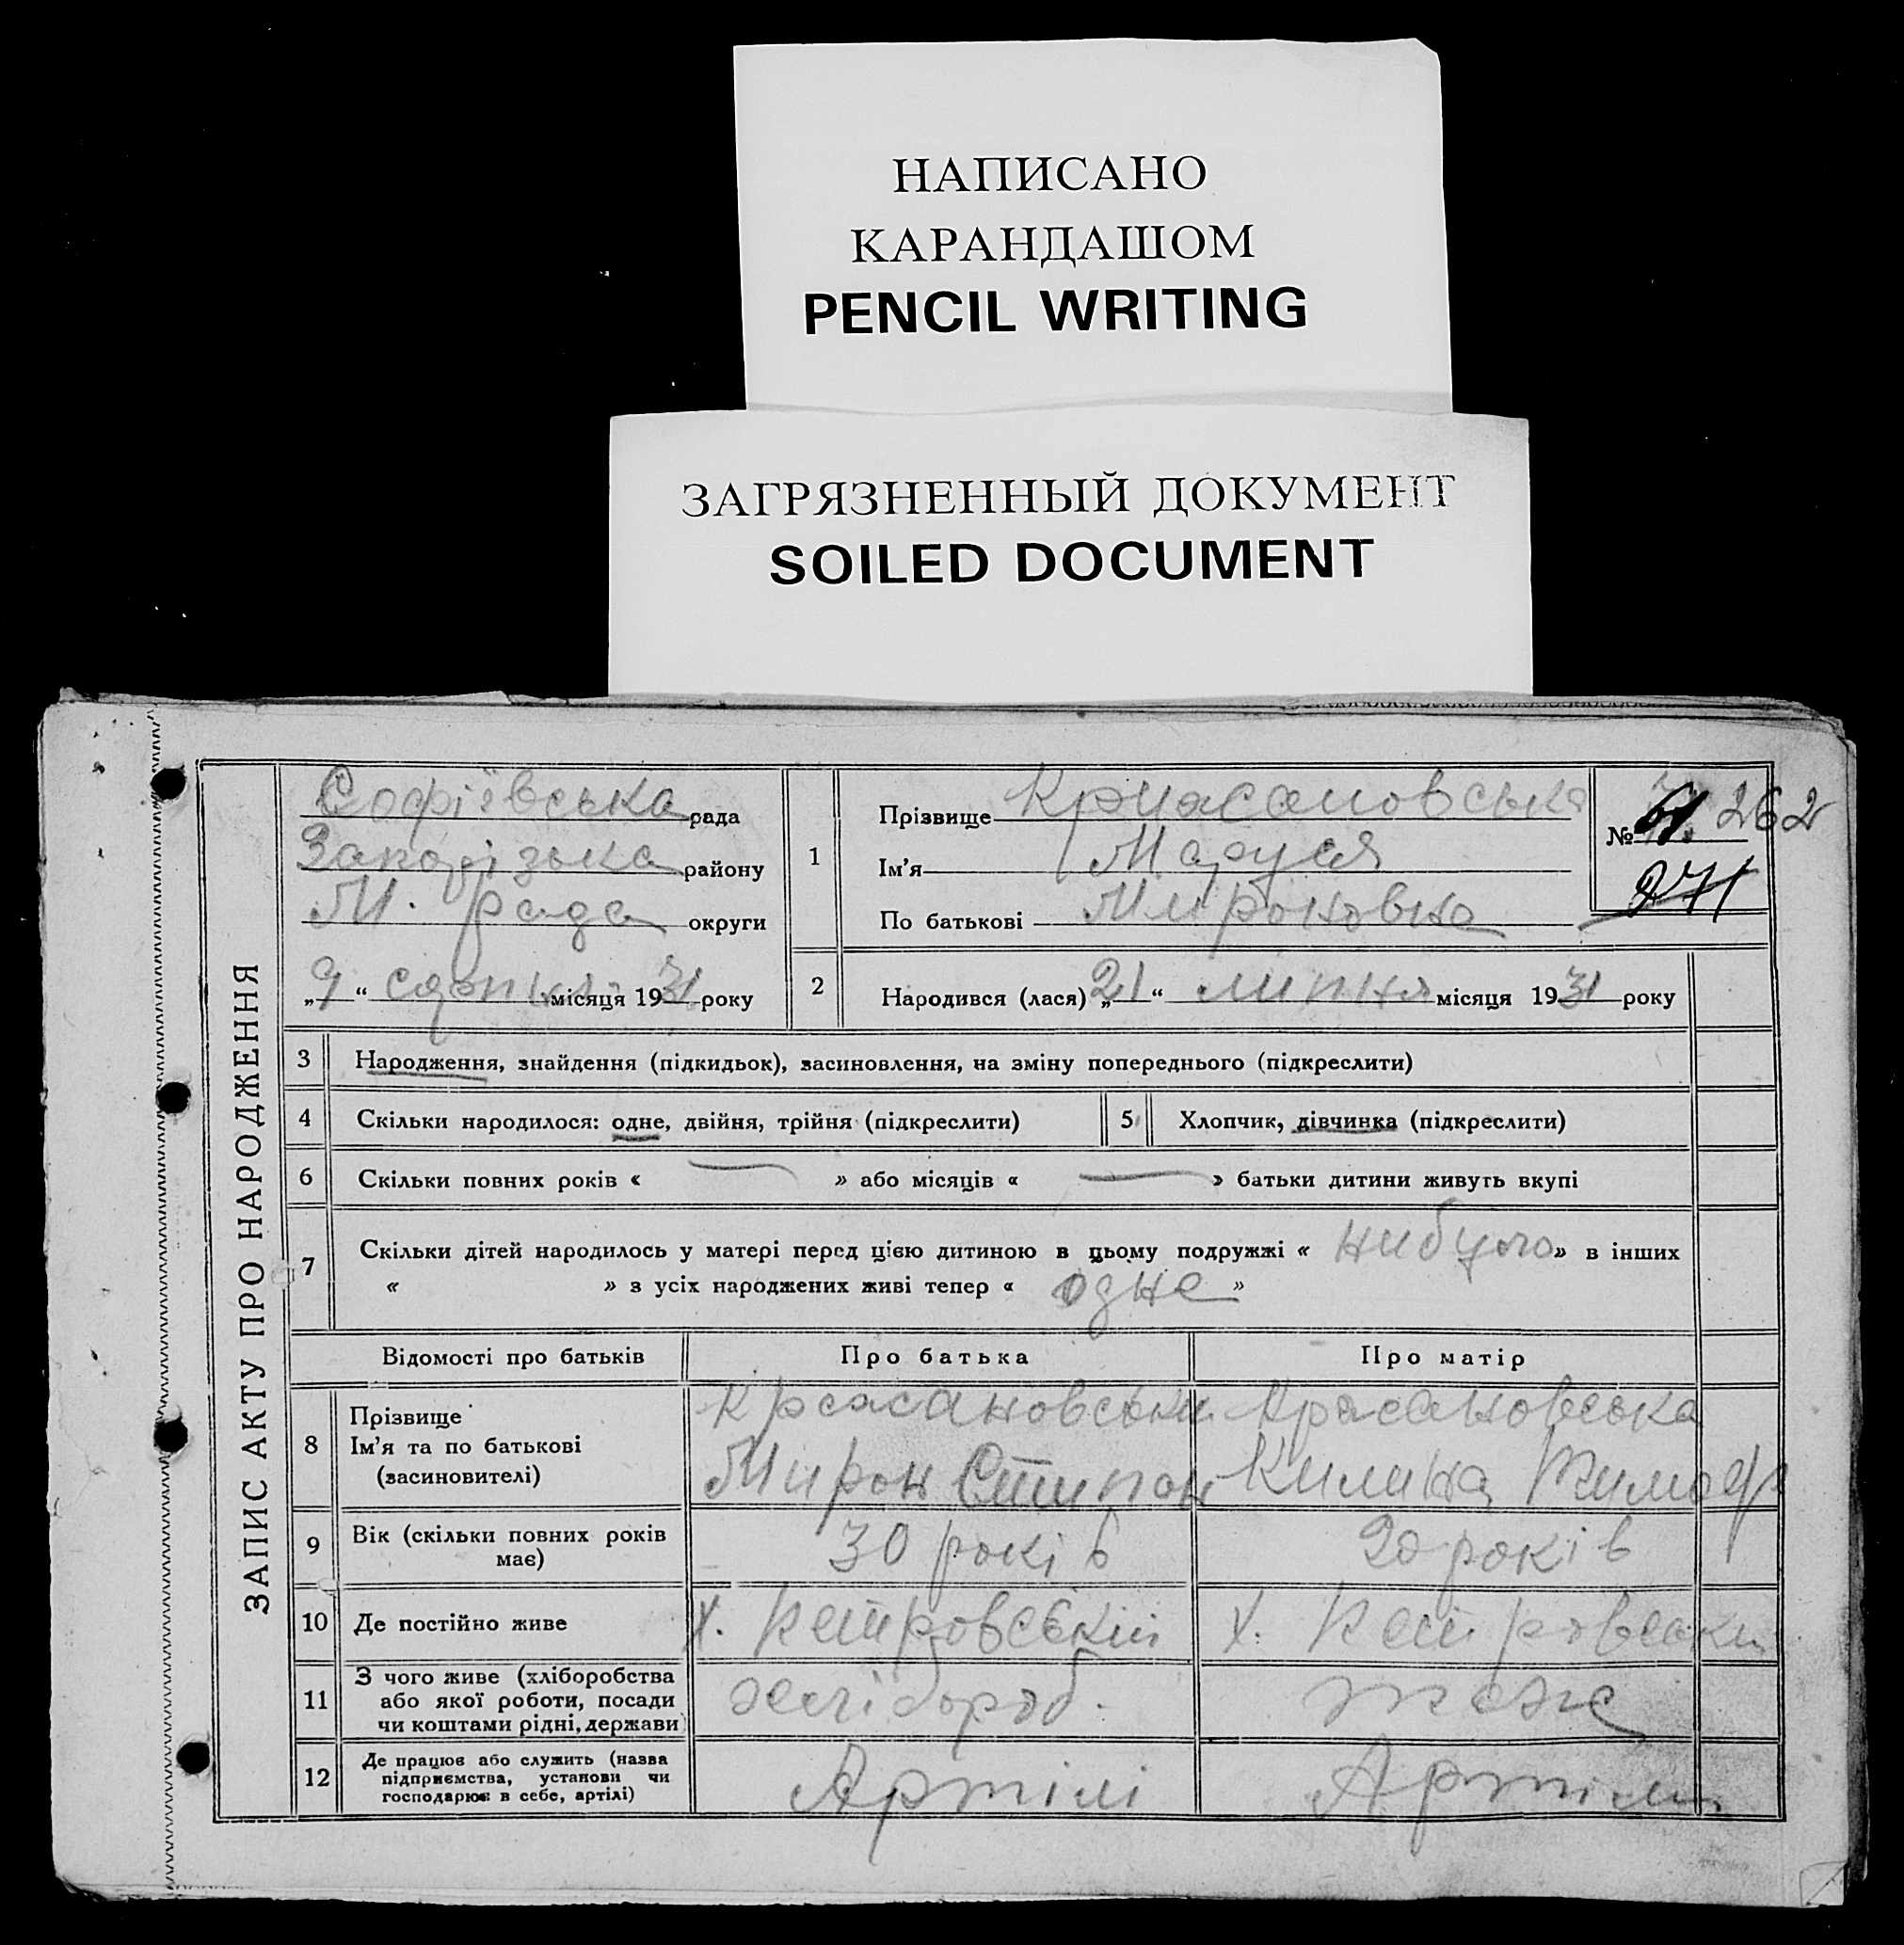 НАПИСАНО
КАРАНДАШОМ
PENCIL WRITING
ЗАГРЯЗНЕННЫЙ ДОКУМЕНТ
SOILED DOCUMENT
ЗАПИС АКТУ ПРО НАРОДЖЕННЯ
Софіївська рада
району
М. рада округи
„9“ серпня місяця 1931 року
1
Прізвище
Ім'я Маруся
По батькові Мироновна
№ 262
271
2 Народився (лася) „21“ липня місяця 1931 року
3 Народження, знайдення (підкидьок), засиновлення, на зміну попереднього (підкреслити)
4 Скільки народилося: одне, двійня, трійня (підкреслити)
5 Хлопчик, дівчинка (підкреслити)
6 Скільки повних років « — » або місяців « — » батьки дитини живуть вкупі
7 Скільки дітей народилось у матері перед цією дитиною в цьому подружжі « нибуло » в інших
« » з усіх народжених живі тепер « одне »
Відомості про батьків Про батька Про матір
8 Прізвище
Ім'я та по батькові
(засиновителі)
Мирон Степан
Килина Тимоф
9 Вік (скільки повних років
має)
30 років 20 років
10 Де постійно живе Х. Петровський Х. Петровськи
11 З чого живе (хліборобства
або якої роботи, посади
чи коштами рідні, держави)
хлібороб. тоже
12 Де працює або служить (назва
підприємства, установи чи
господарює в себе, артілі)
Артілі Артілі